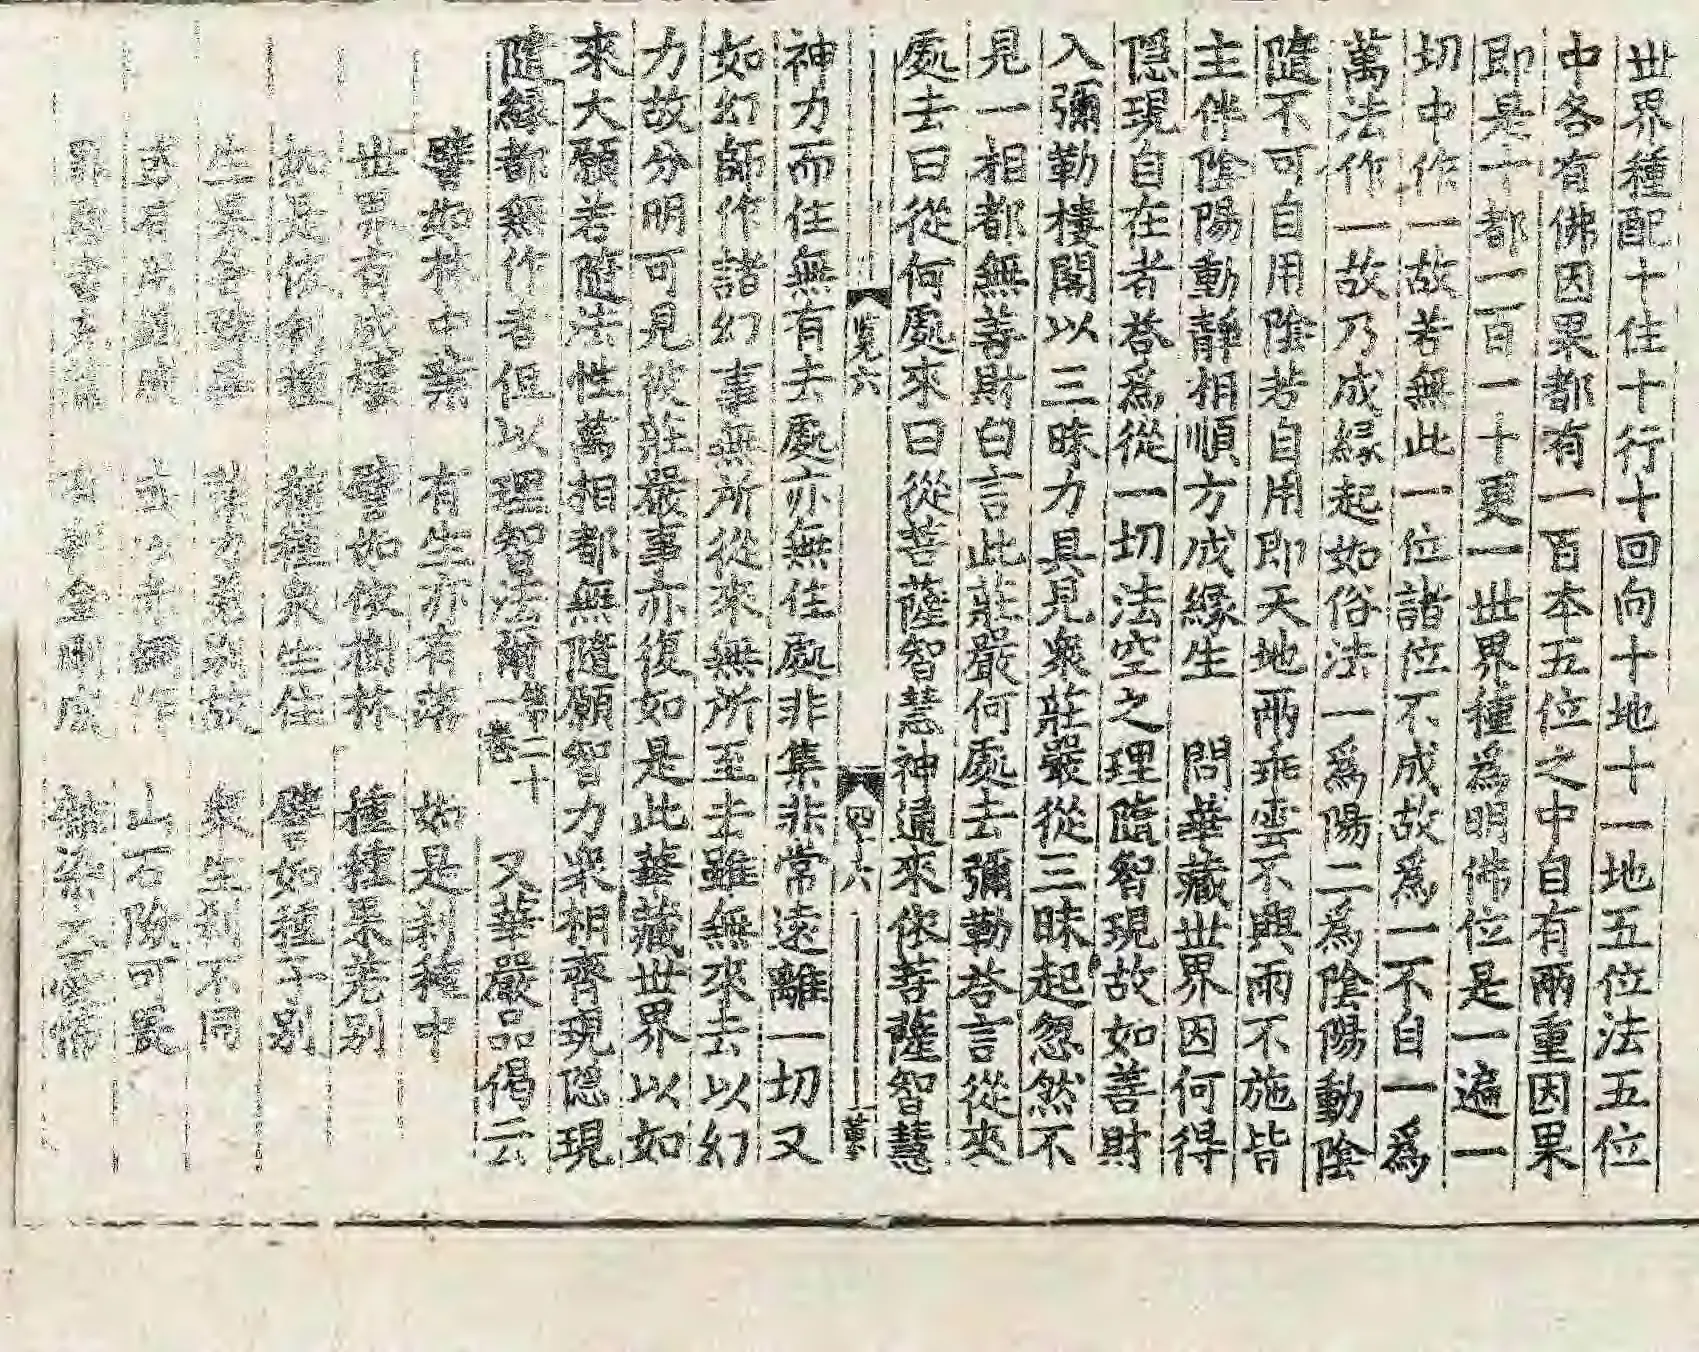 世界種配十住十行十回向十地十一地五位法五位
中各有佛因果都有一百本五位之中自有兩重因果
即是十都一百一十更一世界種為明佛位是一遍一
切中作一故若無此一位諸位不成故爲一不自一爲
萬法作一故乃成緣起如俗法一爲陽二爲陰陽動陰
隨不可自用陰若自用即天地兩乖坴不興雨不施皆
主伴陰陽動靜相順方成緣生　問華藏世界因何得
隱現自在者答爲從一切法空之理隨智現故如善財
入彌勒樓閣以三昧力具見衆莊嚴從三昧起忽然不
見一相都無善財白言此莊嚴何處去彌勒答言從來
處去曰從何處來曰從菩薩智慧神通來依菩薩智慧
覽六　四十六
神力而住無有去處亦無住處非集非常遠離一切又
如幻師作諸幻事無所從來無所至去雖無來去以幻
力故分明可見彼莊嚴事亦復如是此華藏世界以如
來大願若隨法性萬相都無隨願智力衆相齊現隱現
隨緣都無作者但以理智法爾第二十一卷　又華嚴品偈云
譬如林中葉　有生亦有落　如是刹種中
世界有成壞　譬如依樹林　種種果差別
如是依刹種　種種衆生住　譬如種子別
生果各殊異　業力差別故　衆生刹不同
或有　山石險可畏